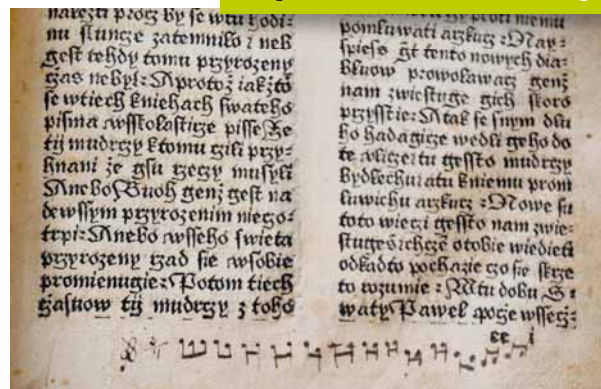 nalezti procz by se wtu hodi⸗
nu sluncze zatemnilo i neb
gest tehdy tomu przyrozeny
czas nebyl: A protoż iakżto
se wtiech kniehach swateho
pisma a wsskolasticze pisse Że
tij mudrczy ktomu przy⸗
hnani że gsu rzeczy musyli
A nebo Buoh genż gest na
dewssym przyrozenim niego⸗
trpi: A nebo wsseho swieta
przyrozeny rzad sie wsobie
promienugie: Potom tiech
czasuow tij mudrczy z toho
proti niemu
pomluwati arzkucz: Nay⸗
spiess gt tento nowych dia⸗
bluow prowolawacz genż
nam zwiestuge gich skoro
przysstie: A tak se snym dlu
ho hadagicze wedli geho do
te tu gessto mudrczy
bydlechu: a tu kniemu prom
luwichu arzkucz: Nowe su
toto wieczi gessto nam zwie⸗
stuges: chczē otobie wiedieti
odkadto pochazie czo sie skrze
to rozumie: A w tu dobu S⸗
waty Pawel pocże wssecż⸗
ee i